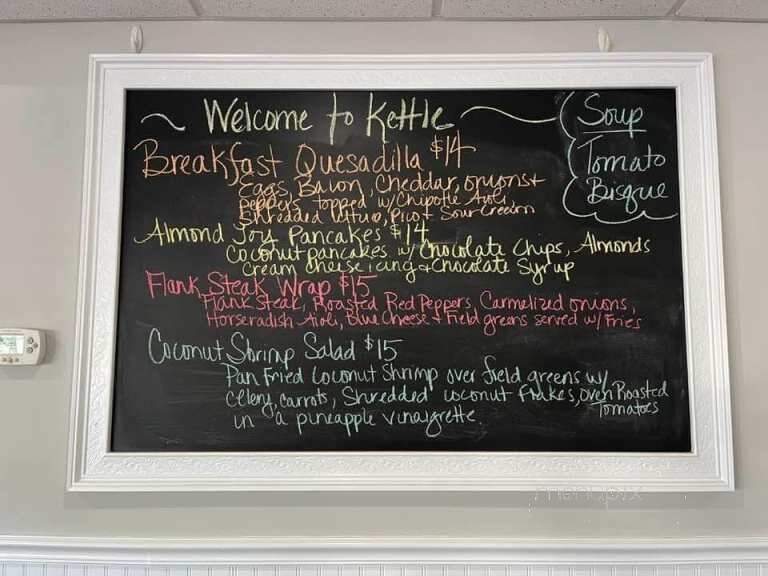 ~ Welcome to Kettle ~
Soup
Tomato
Bisque
Breakfast Quesadilla $14
Eggs, Bacon, Cheddar, onions +
peppers topped w/ Chipotle Aioli,
Shredded lettuce, Pico + Sour Cream
Almond Joy Pancakes $14
Coconut pancakes w/ Chocolate Chips, Almonds
Cream cheese icing + Chocolate Syrup
Flank Steak Wrap $15
Flank Steak, Roasted Red Peppers, Carmelized onions,
Horseradish Aioli, Blue Cheese + Field greens served w/ Fries
Coconut Shrimp Salad $15
Pan Fried Coconut Shrimp over field greens w/
celery, carrots, Shredded coconut Flakes, oven Roasted
Tomatoes
in a pineapple vinaigrette.
menupix